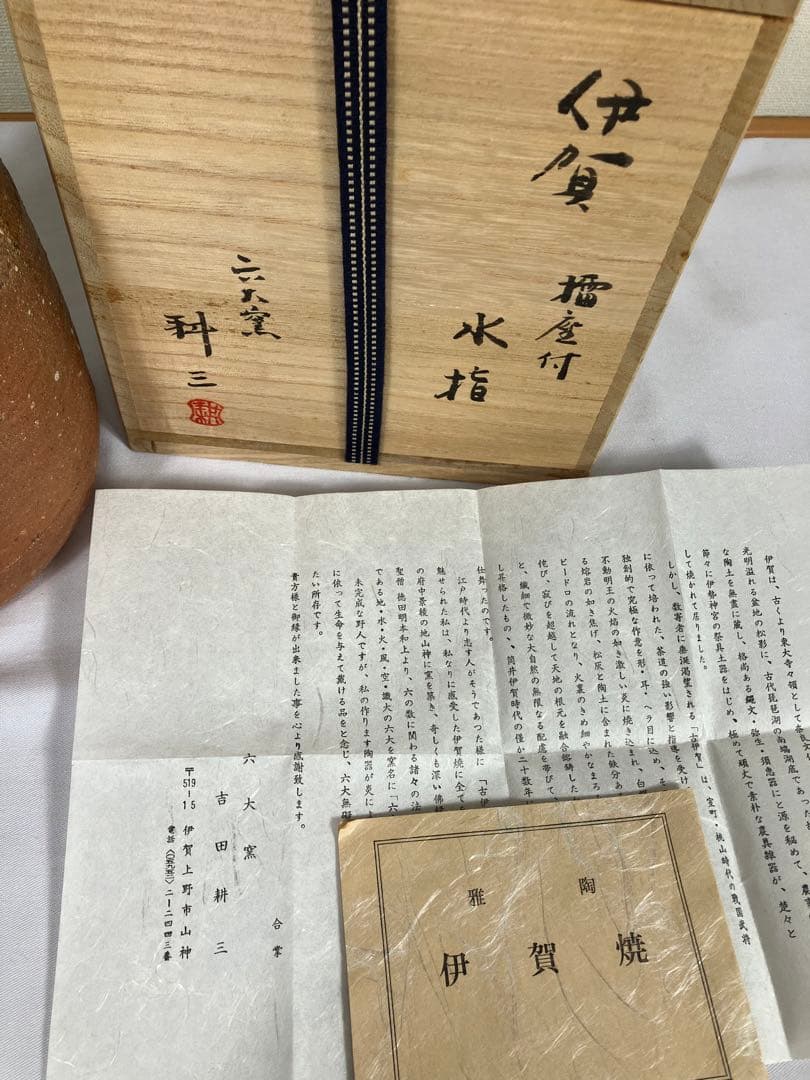 伊賀
擂座付
水指
六大窯
耕三
伊賀は、古くより東大寺々領として
光明溢れる盆地の松影に、古代琵琶湖の南端湖底であった
な陶土を無盡に蔵し、格尚ある縄文・弥生・須恵器にと源を秘めて、農
節々に伊勢神宮の祭具土器をはじめ、極めて頑丈で素朴な農具雑器が、楚々と
して焼かれて居りました。
しかし、数寄者に垂涎渇望される「古伊賀」は、室町・桃山時代の戦国武将
に依って培われた、茶道の強い影響と指導を受け
独創的で究極な作意を形・耳・ヘラ目に込め、そ
不動明王の火焰の如き激しい炎に焼き込まれ、白
る熔岩の如き焦げ、松灰と陶土に含まれた鉄分あ
ビードロの流れとなり、火裏のきめ細やかなまろ
侘び、寂びを超越して天地の根元を融合認鋳した
と、繊細で微妙な大自然の無限なる配慮を帯びて、
し昇格したもの、、筒井伊賀時代の僅か二十数年
仕舞ったのです。
江戸時代より志す人がそうであった様に「古伊
魅せられた私は、私なりに感受した伊賀焼に全て
の府中景稜の地山神に窯を築き、奇しくも深い佛
聖僧 徳田明本和上より、六の数に関わる諸々の法
である地・水・火・風・空・識大の六大を窯名に「六
未完成な野人ですが、私の作ります陶器が炎によ
に依って生命を与えて戴ける品をと念じ、六大無礙
たい所存です。
貴方様と御縁が出来ました事を心より感謝致します。
合掌
六大窯
吉田耕三
〒519-15 伊賀上野市山神
電話 二ー二四四三番
陶雅
伊賀焼